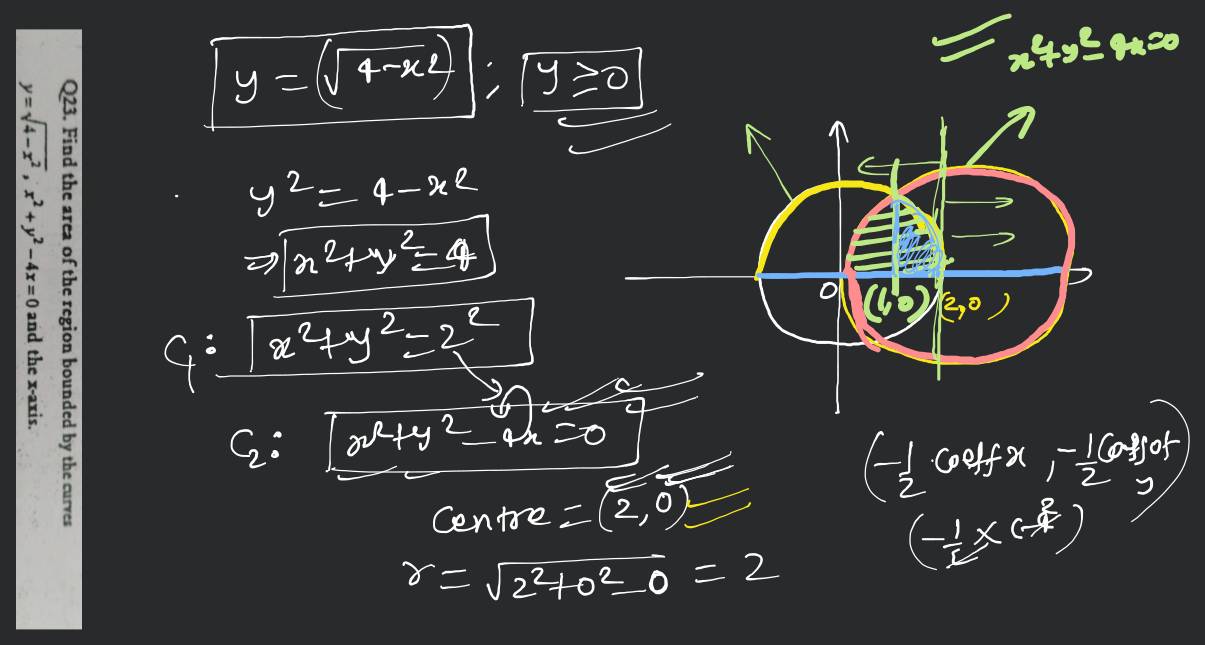 Q23. Find the area of the region bounded by the curves
y = √4 − x², x² + y² − 4x = 0 and the x-axis.
y = (√4-x²) ; y ≥ 0
y² = 4 - x²
⇒ x² + y² = 4
C₁: x² + y² = 2²
C₂: x² + y² - 4x = 0
Centre = (2, 0)
r = √2² + 0² - 0 = 2
x² + y² - 4x = 0
0
(1, 0)
(2, 0)
(-1/2 coeff x, -1/2 coeff of y)